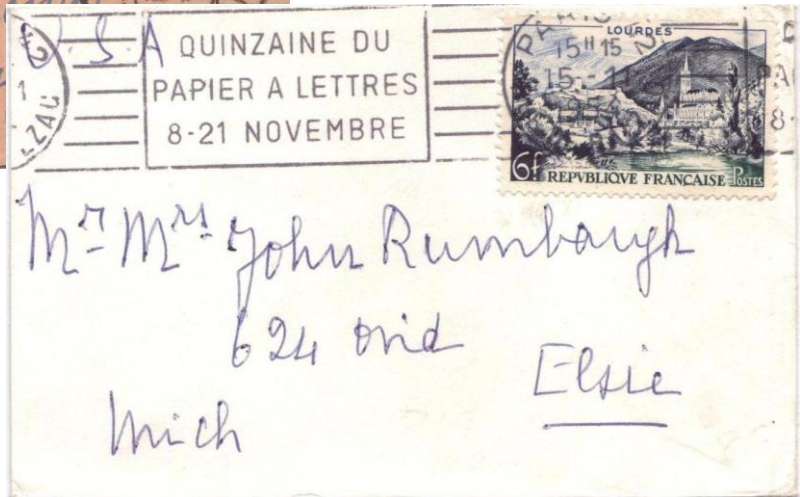 U S A
QUINZAINE DU
PAPIER A LETTRES
8-21 NOVEMBRE
PARIS
15H15
15-11
1954
LOURDES
6f REPVBLIQVE FRANÇAISE POSTES
8-
Mr. Mrs. John Rumbaugh
624 Ovid
Elsie
Mich